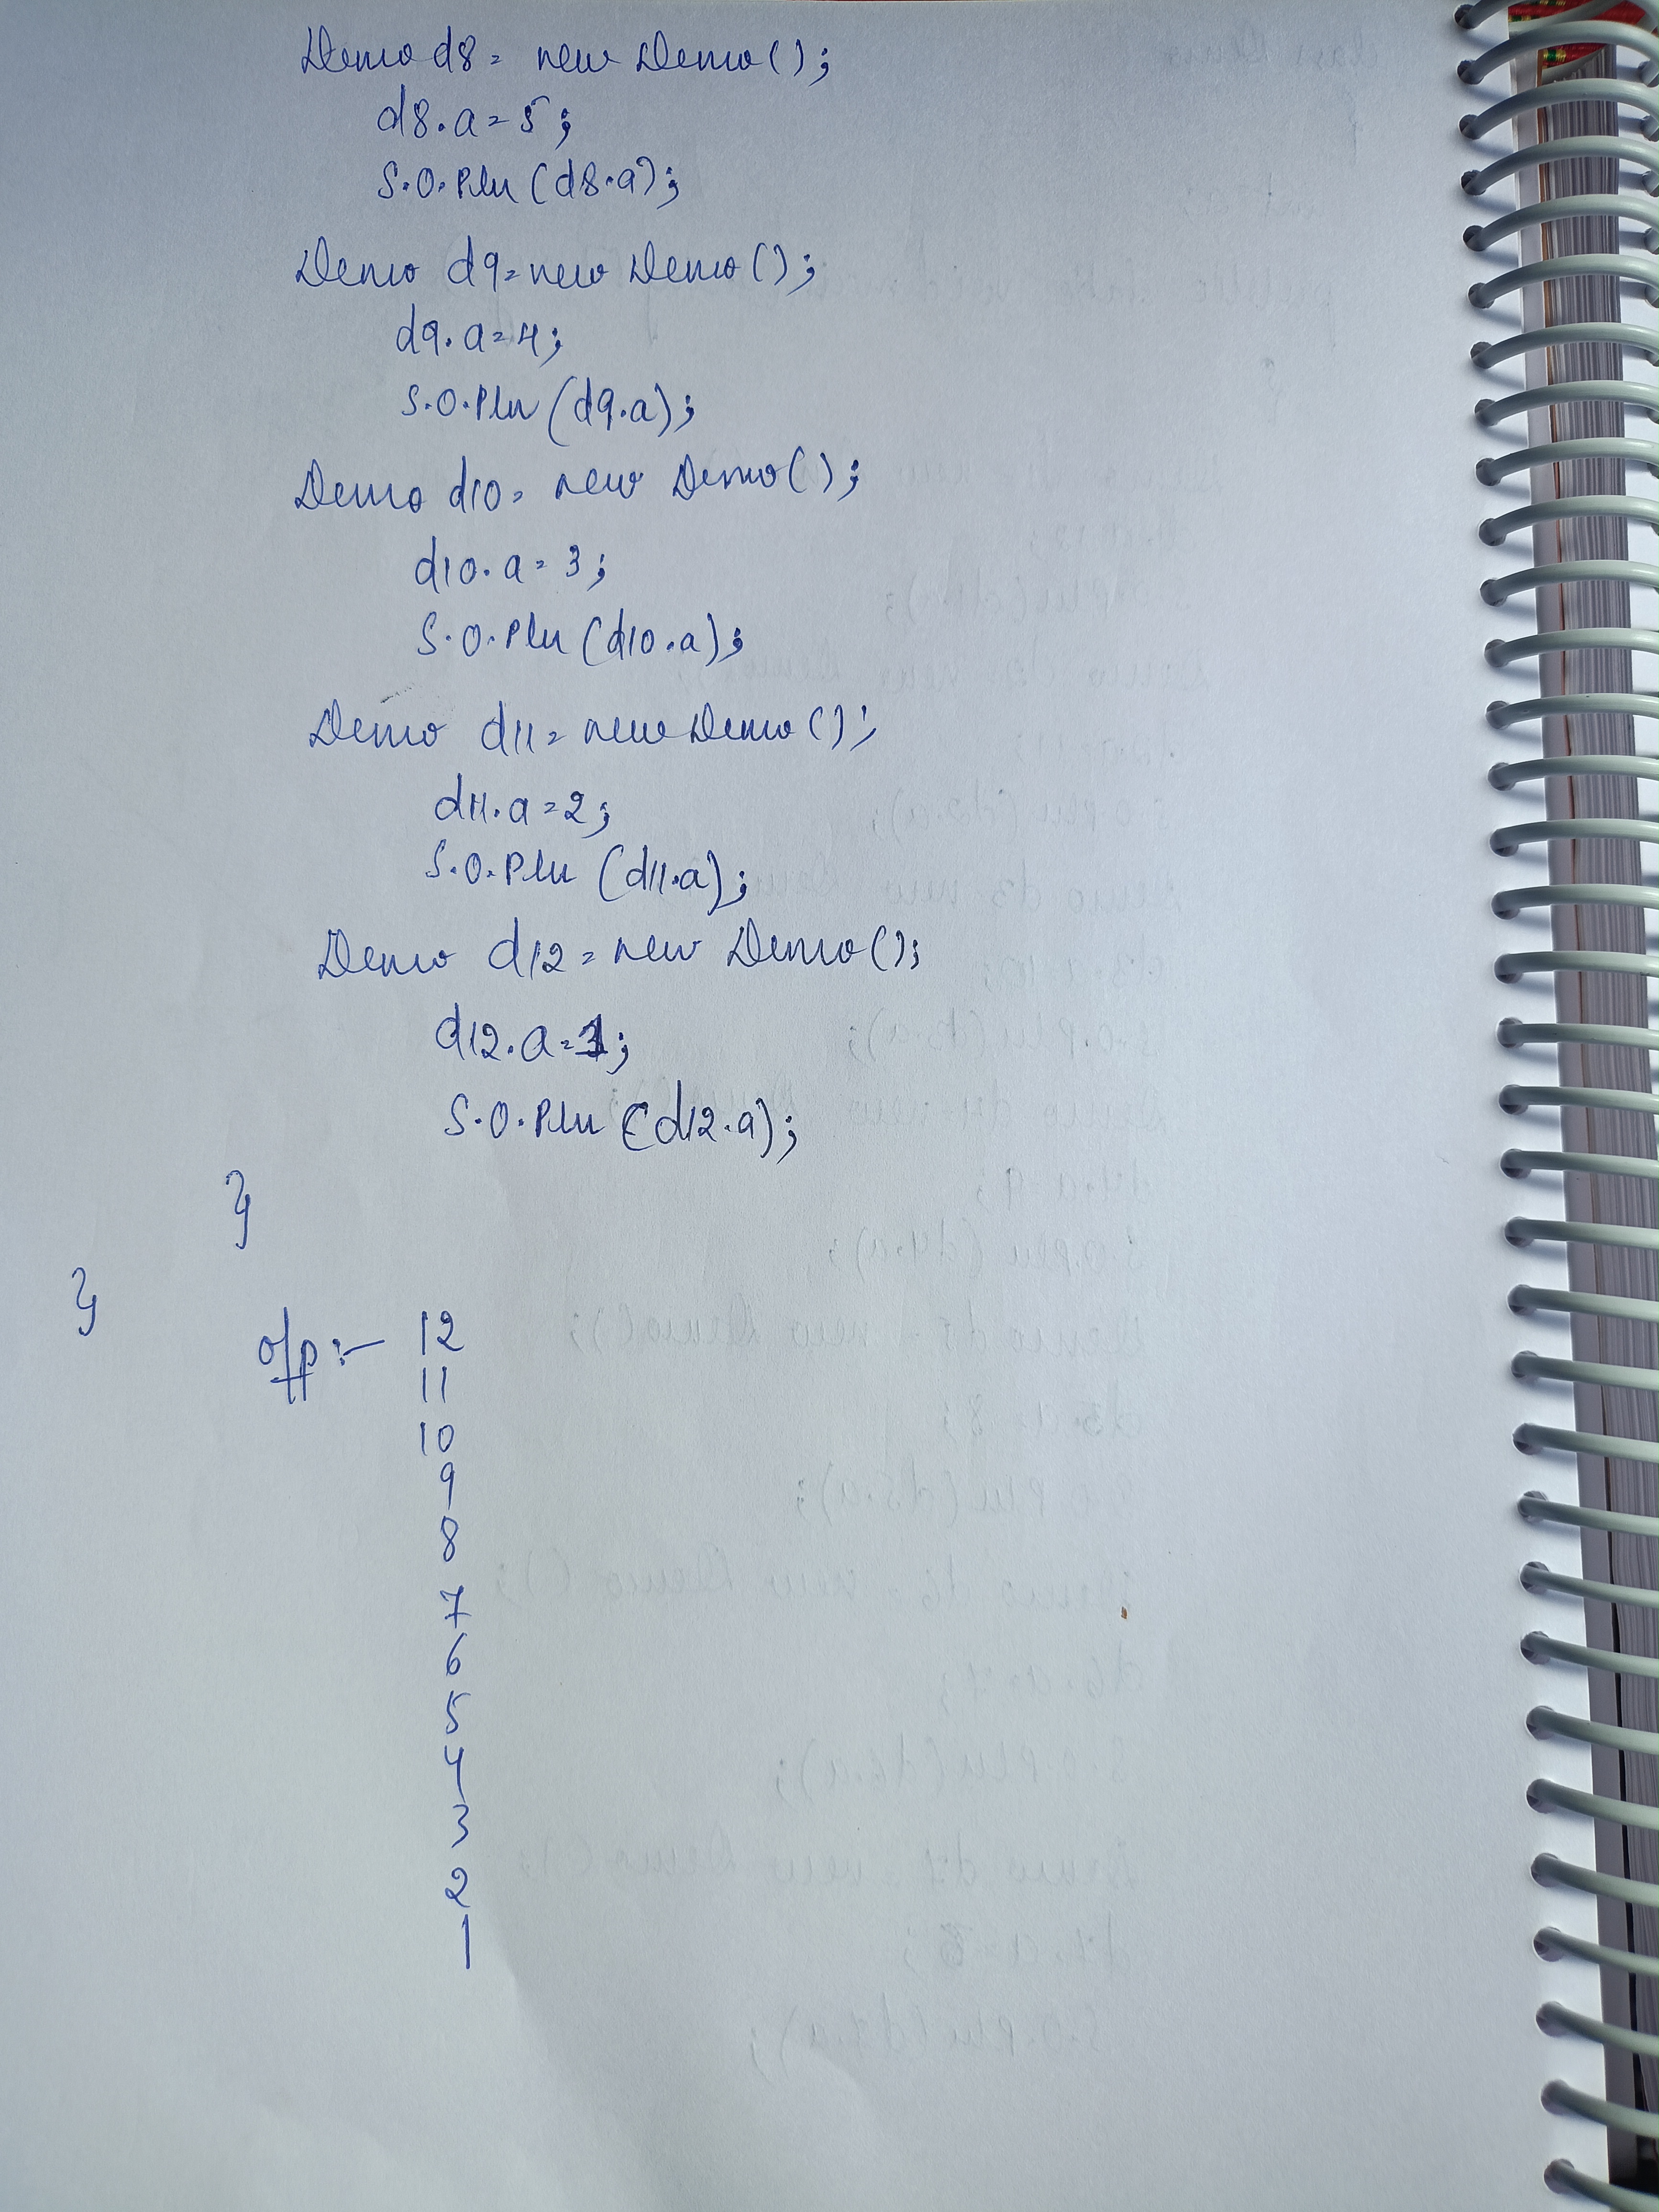 Demo d8 = new Demo();
d8.a = 5;
S.O.Pln (d8.a);
Demo d9 = new Demo();
d9.a = 4;
S.O.Pln (d9.a);
Demo d10 = new Demo();
d10.a = 3;
S.O.Pln (d10.a);
Demo d11 = new Demo();
d11.a = 2;
S.O.Pln (d11.a);
Demo d12 = new Demo();
d12.a = 1;
S.O.Pln (d12.a);
}
}
o/p :- 12
11
10
9
8
7
6
5
4
3
2
1